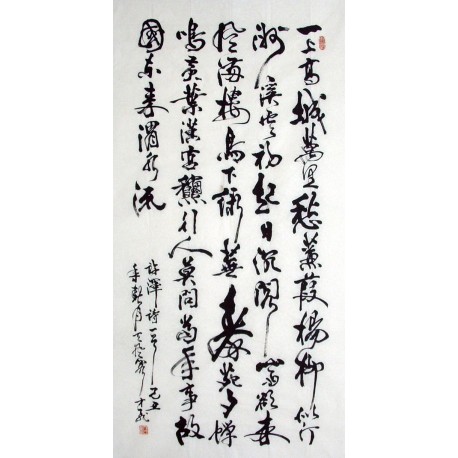 一上高城萬里愁蒹葭楊柳似汀
洲溪雲初起日沉閣山雨欲来
風滿樓鳥下綠蕪秦苑夕蟬
鳴黃葉漢宮龝行人莫問當年事故
國东来渭水流
許渾詩一首己丑
年